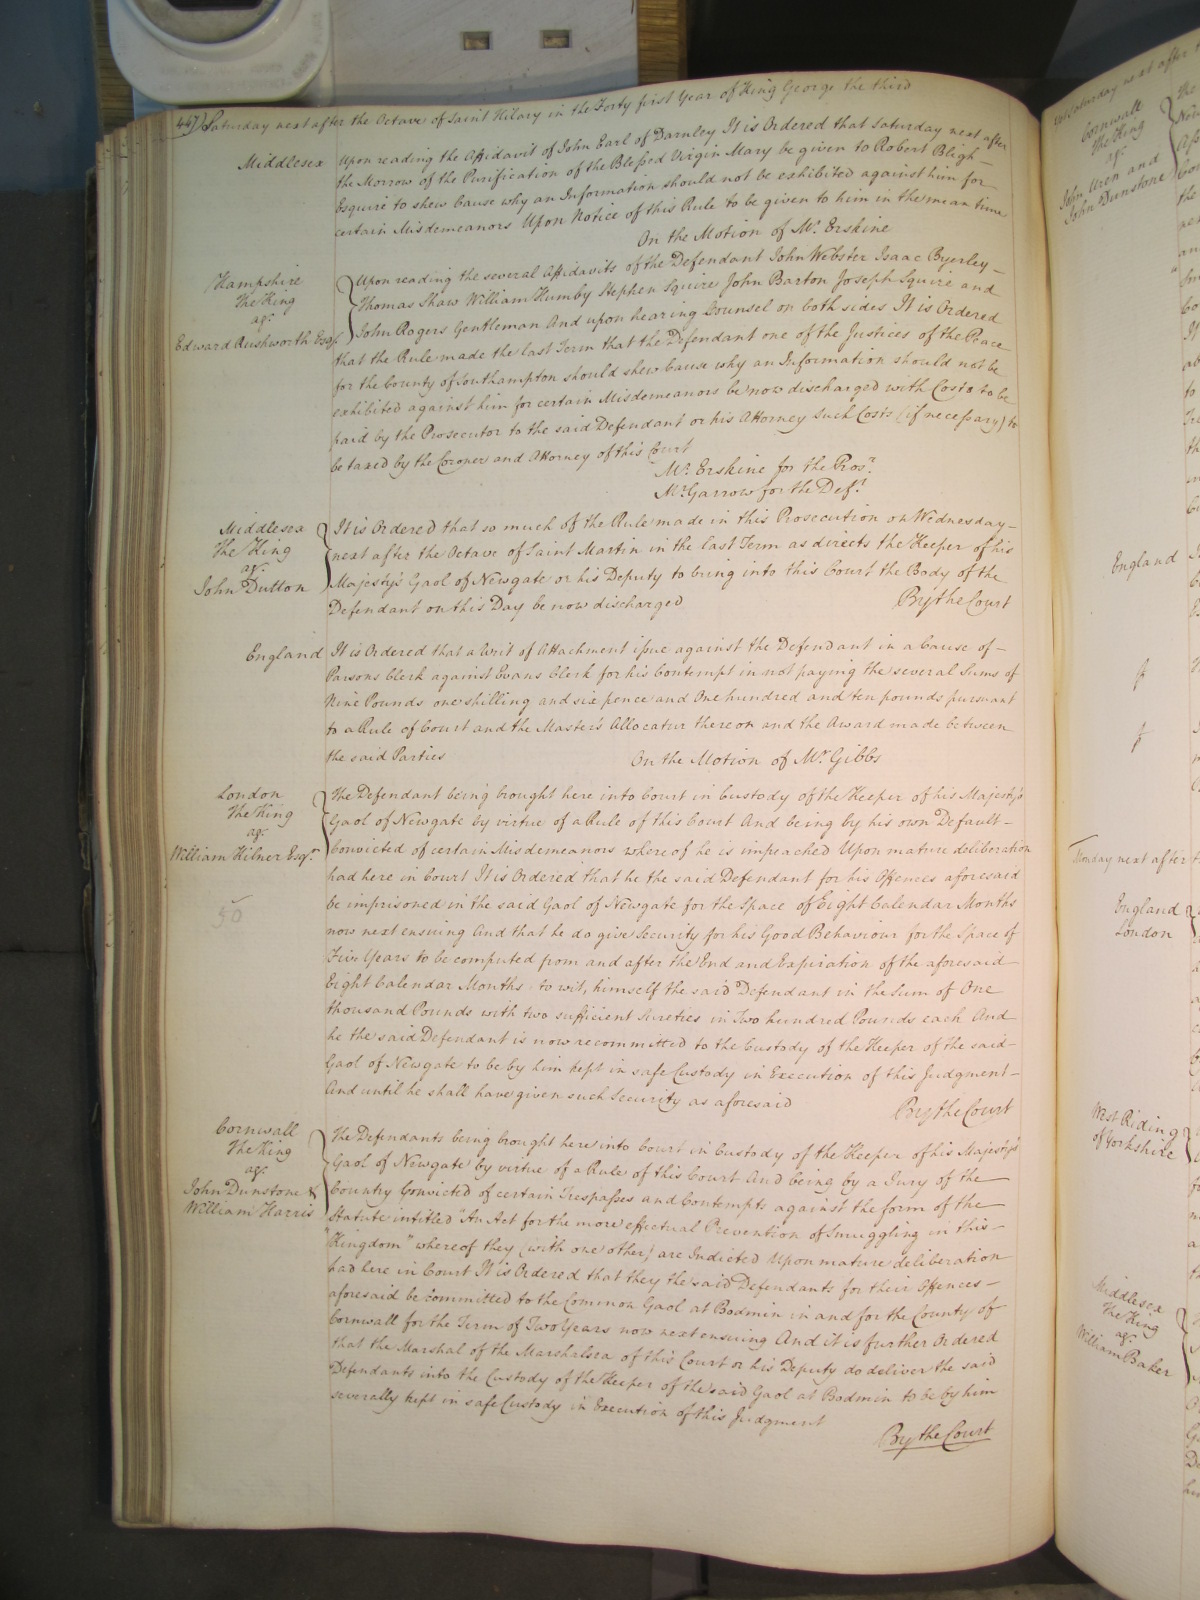 447) Saturday next after the Octave of Saint Hilary in the Forty first Year of King George the third
Middlesex
Upon reading the Affidavit of John Earl of Darnley It is Ordered that Saturday next after
the Morrow of the Purification of the Blessed Virgin Mary be given to Robert Bligh
Esquire to shew Cause why an Information should not be exhibited against him for
certain Misdemeanors Upon Notice of this Rule to be given to him in the mean time
On the Motion of Mr. Erskine
Hampshire
The King
agt.
Edward Rushworth Esqr.
Upon reading the several Affidavits of the Defendant John Webster Isaac Byerley
Thomas Shaw William Humby Stephen Squire John Barton Joseph Squire and
John Rogers Gentleman And upon hearing Counsel on both sides It is Ordered
that the Rule made the last Term that the Defendant one of the Justices of the Peace
for the County of Southampton should shew Cause why an Information should not be
exhibited against him for certain Misdemeanors be now discharged with Costs to be
paid by the Prosecutor to the said Defendant or his Attorney such Costs (if necessary) to
be taxed by the Coroner and Attorney of this Court
Mr. Erskine for the Prosr.
Mr. Garrow for the Deft.
Middlesex
The King
agt.
John Dutton
It is Ordered that so much of the Rule made in this Prosecution on Wednesday
next after the Octave of Saint Martin in the last Term as directs the Keeper of his
Majesty's Gaol of Newgate or his Deputy to bring into this Court the Body of the
Defendant on this Day be now discharged
By the Court
England
It is Ordered that a Writ of Attachment issue against the Defendant in a Cause of
Parsons Clerk against Evans Clerk for his Contempt in not paying the several Sums of
Nine Pounds one shilling and six pence and One hundred and ten pounds pursuant
to a Rule of Court and the Master's Allocatur thereon and the Award made between
the said Parties
On the Motion of Mr. Gibbs
London
The King
agt.
William Hilner Esqr.
50
The Defendant being brought here into Court in Custody of the Keeper of his Majesty's
Gaol of Newgate by virtue of a Rule of this Court And being by his own Default
Convicted of certain Misdemeanors whereof he is impeached Upon mature deliberation
had here in Court It is Ordered that he the said Defendant for his Offences aforesaid
be imprisoned in the said Gaol of Newgate for the Space of Eight Calendar Months
now next ensuing And that he do give Security for his Good Behaviour for the Space of
Five Years to be computed from and after the End and Expiration of the aforesaid
Eight Calendar Months to wit, himself the said Defendant in the Sum of One
thousand Pounds with two sufficient Sureties in Two hundred Pounds each And
he the said Defendant is now recommitted to the Custody of the Keeper of the said
Gaol of Newgate to be by him kept in safe Custody in Execution of this Judgment
And until he shall have given such Security as aforesaid
By the Court
Cornwall
The King
agt.
John Dunstone &
William Harris
The Defendants being brought here into Court in Custody of the Keeper of his Majesty's
Gaol of Newgate by virtue of a Rule of this Court And being by a Jury of the
Country Convicted of certain Trespasses and Contempts against the form of the
Statute intitled "An Act for the more effectual Prevention of Smuggling in this
"Kingdom" whereof they (with one other) are Indicted Upon mature deliberation
had here in Court It is Ordered that they the said Defendants for their Offences
aforesaid be committed to the Common Gaol at Bodmin in and for the County of
Cornwall for the Term of Two Years now next ensuing And it is further Ordered
that the Marshal of the Marshalsea of this Court or his Deputy do deliver the said
Defendants into the Custody of the Keeper of the said Gaol at Bodmin to be by him
severally kept in safe Custody in Execution of this Judgment
By the Court
Saturday next after
Cornwall
The King
agt.
John Uren and
John Dunstone
England
Monday next after
England
London
West Riding
of Yorkshire
Middlesex
The King
agt.
William Baker